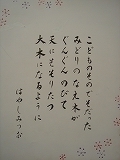 こどものそのでそだった
みどりのなえ木が
ぐんぐんのびて
天にもそそりたつ
大木になるように
はやしみつお